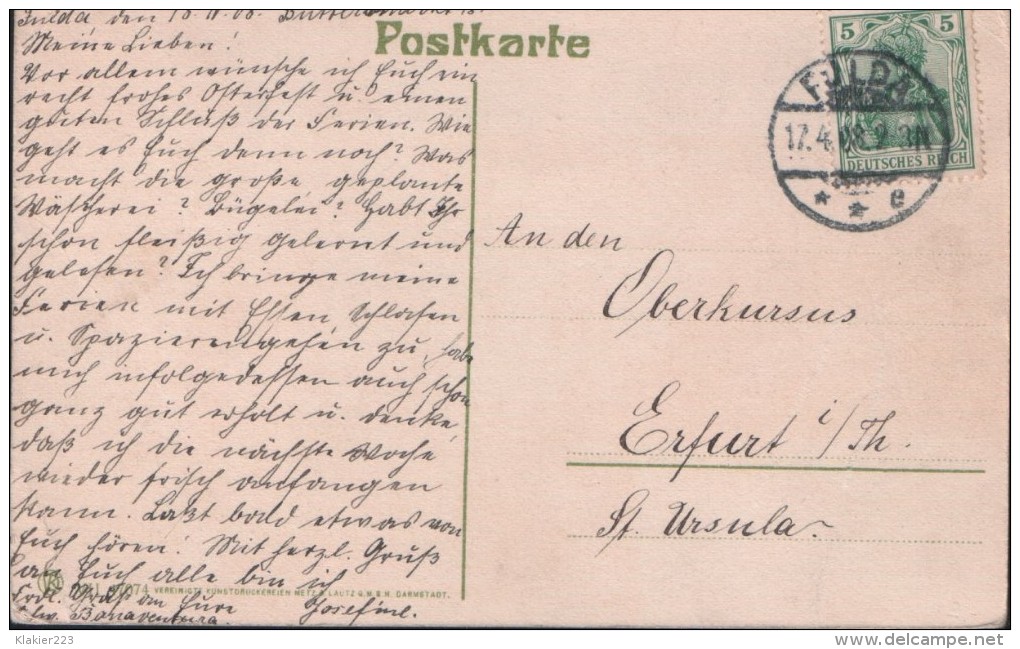 Fulda den 18.IV.08.
Meine Lieben!
Vor allem wünsche ich Euch ein
recht frohes Osterfest u. einen
guten Schluß der Ferien. Wie
geht es Euch denn noch? Was
macht die große geplante
Wäscherei? Bügelei? Habt Ihr
schon fleißig gelernt und
gelesen? Ich bringe meine
Ferien mit Essen Schlafen
u. Spazierengehen zu, habe
mich infolgedessen auch schon
ganz gut erholt u. denke,
daß ich die nächste Woche
wieder frisch anfangen
kann. Laßt bald etwas von
Euch hören! Mit herzl. Gruß
an Euch alle bin ich
Frdl. Gruß an Eure Josefine.
Bonaventura.
VEREINIGTE KUNSTDRUCKEREIEN METZ & LAUTZ G.M.B.H. DARMSTADT.
Postkarte
5 5
DEUTSCHES REICH
FULDA
17.4.08. 2-3N
* * e
An den
Oberkursus
Erfurt i/Th.
St. Ursula
Klakier223
delcampe.net